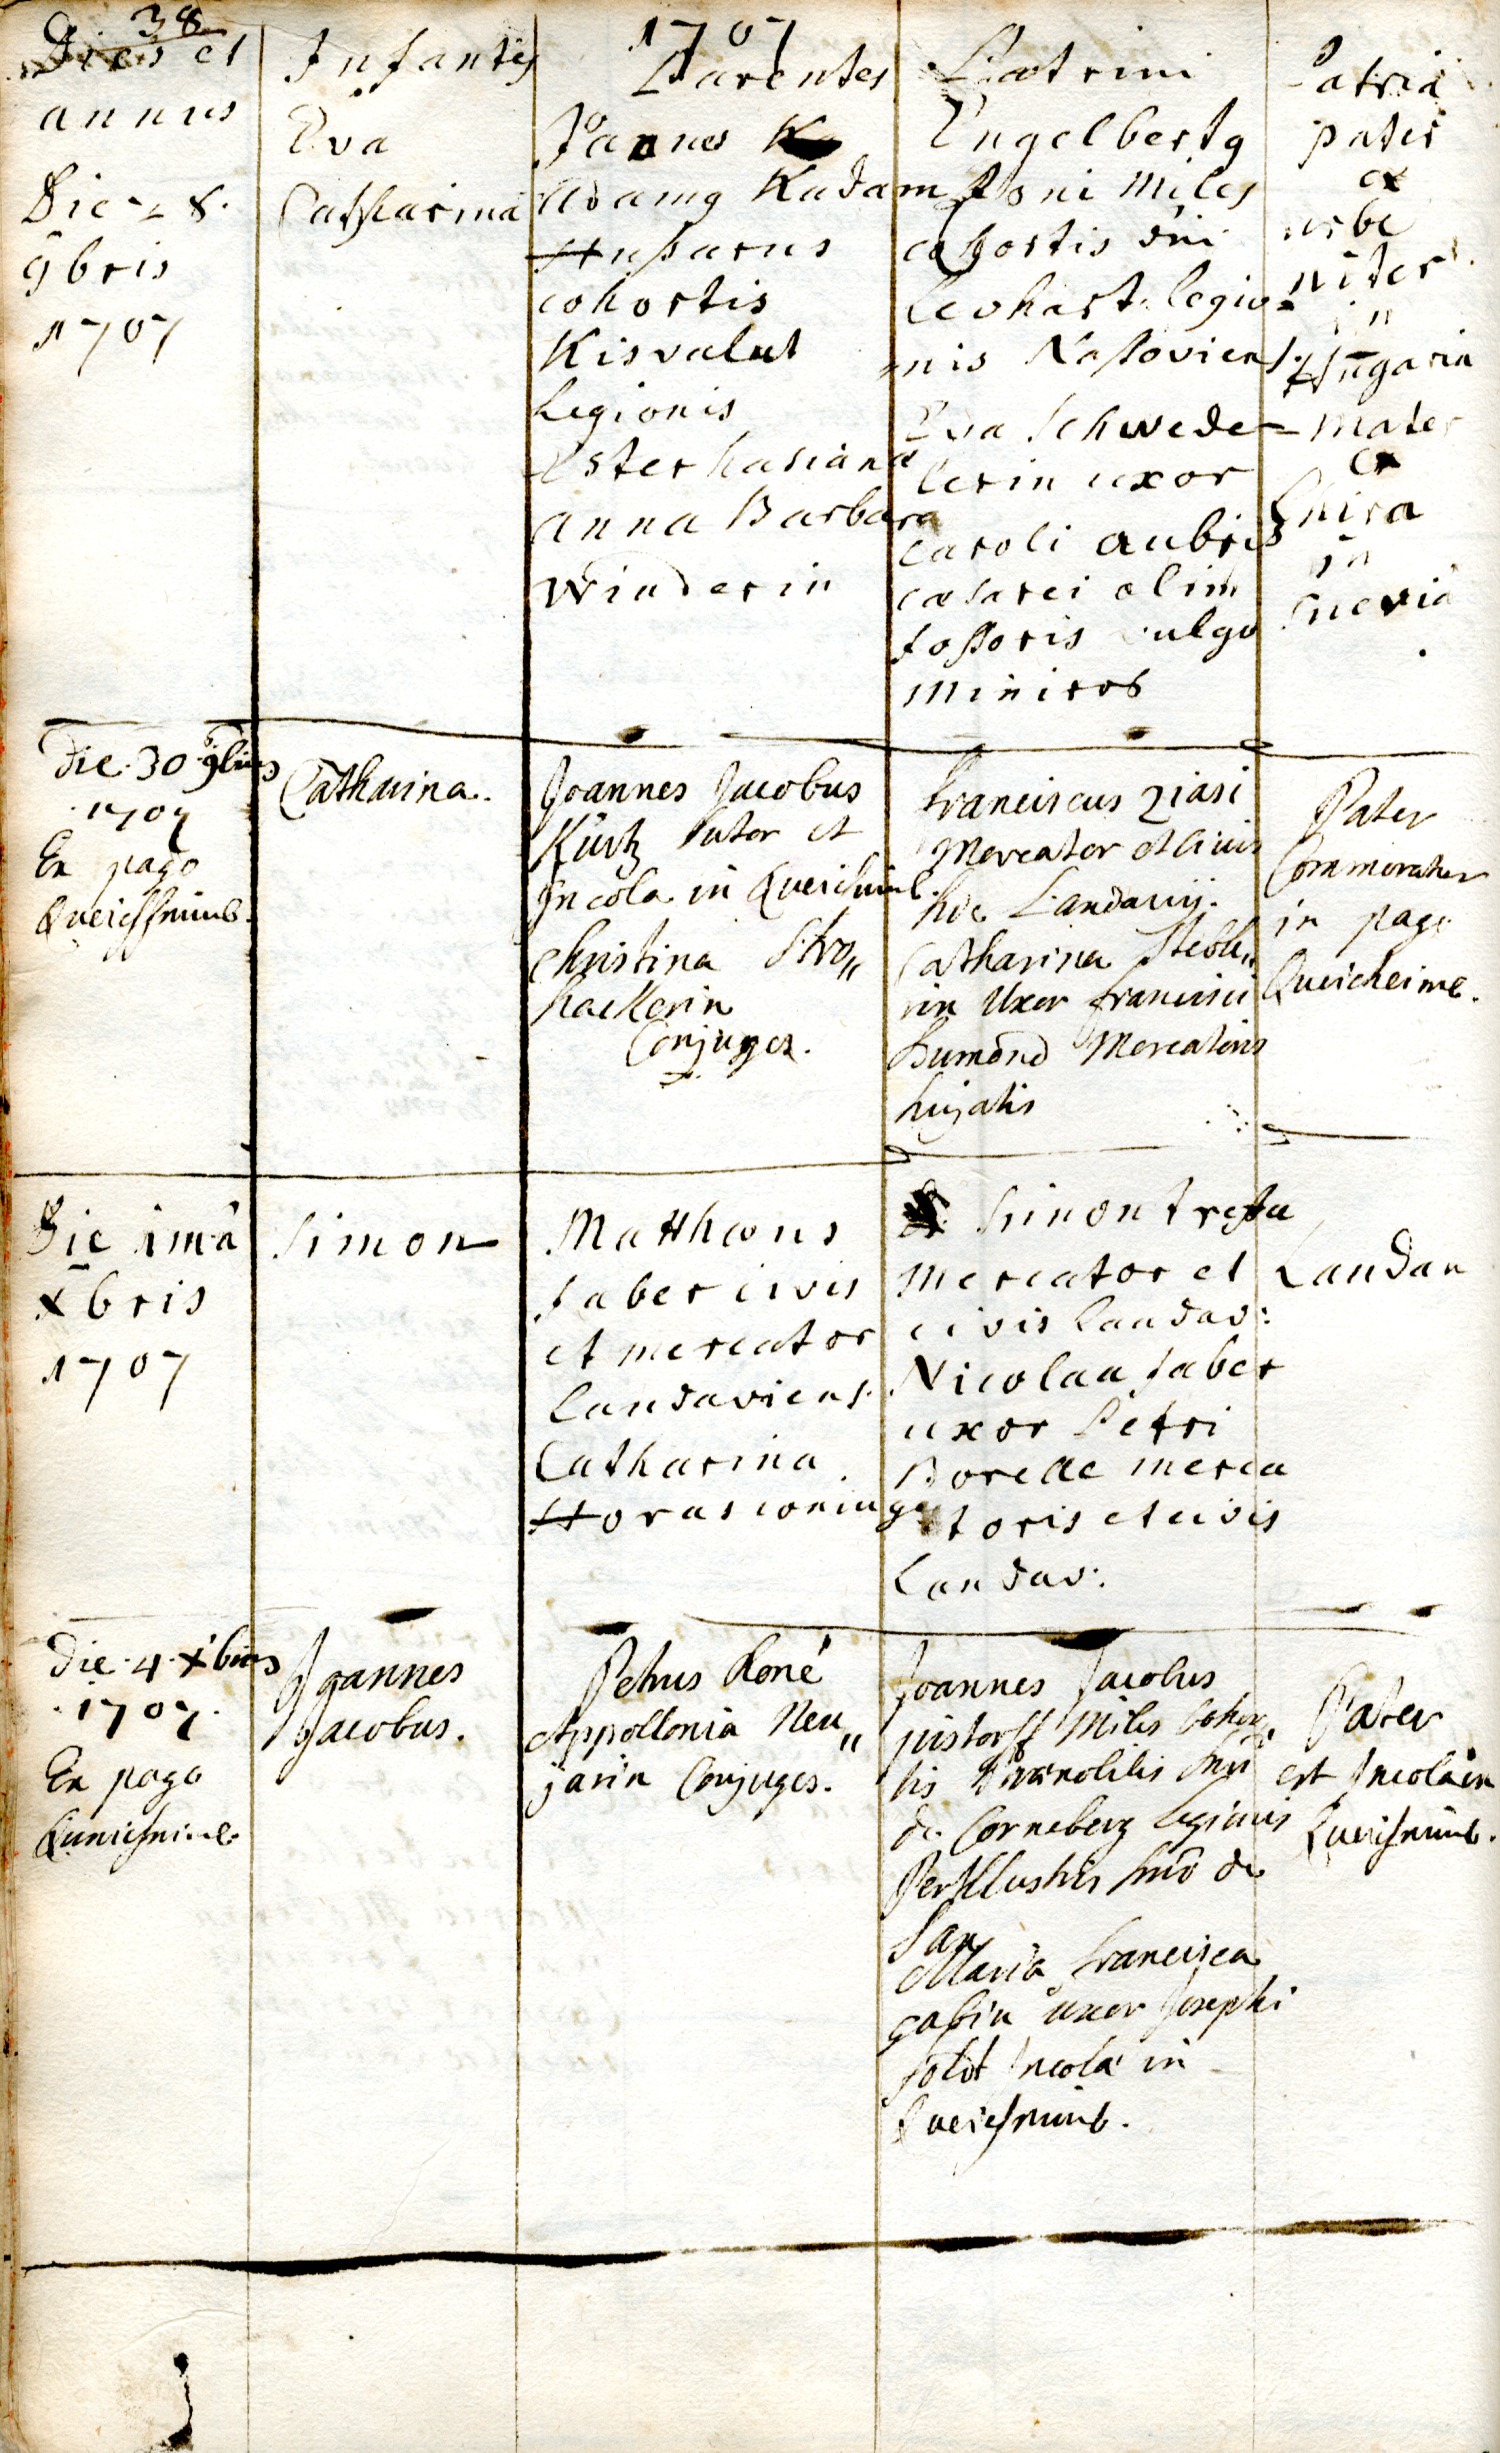 38
1707
Dies et
annus
Infantes
Parentes
Patrini
Patria
Die 28.
9bris
1707
Eva
Catharina
Joannes
Adamus Kadam
Husarus
cohortis
Kisvalut
Legionis
Esterhasiana
Anna Barbara
Winderin
Engelbertg
Joni Miles
cohortis dni
Leohart legio=
nis Nassoviens.
Eva Schwede=
lerin uxor
Caroli aubris
caesarei olim
fossoris vulgo
Minirob
pater
ex
urbe
niter
in
Hungaria
mater
ex
in
suevia
Die 30 9bris
1707
Ex pago
Queichheimb.
Catharina.
Joannes Jacobus
Kürtz sutor et
Incola in Queicheimb.
Christina Stro„
hackerin
Conjuges.
Franciscus Ziasi
Mercator et Civis
hic Landavij.
Catharina Stebl„
rin Uxor Francisci
Humond Mercatoris
hujatis
Pater
Commoratur
in pago
Queicheimb.
Die 1mâ
Xbris
1707
Simon
Matthaeus
faber civis
et mercator
Landaviens.
Catharina
Horas coniuges
Simon trefa
Mercator et
civis Landav:
Nicolaa faber
uxor Petri
Borelle merca
toris et civis
Landav:
Landau
Die 4 Xbris
1707.
Ex pago
Queichheimb.
Joannes
Jacobus.
Petrus Roné
Appollonia Neu„
jarin Conjuges.
Joannes Jacobus
pistorff Miles Cohor„
tis Dni
de Corneberg Legionis
Perillustris Dno de
San
Maria Francisca
gassin uxor Josephi
Incola in
Queichheimb.
Pater
est Incola in
Queichheimb.